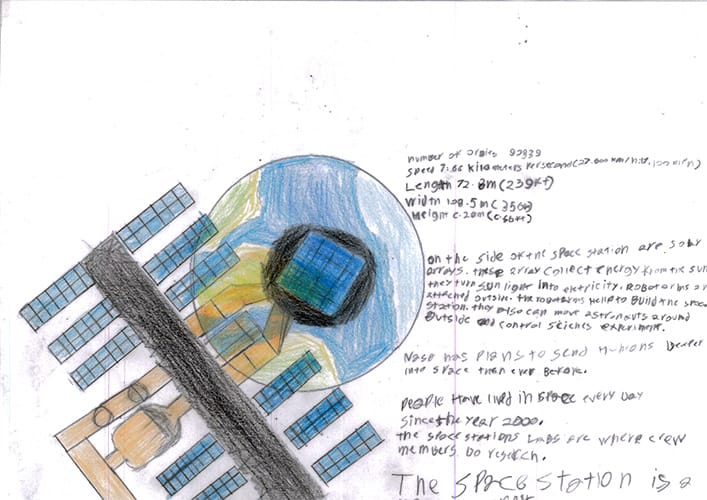 number of orbies 92939
speed 7.66 kilometers persecond(27.600 km/h
Length 72.8m(239ft)
width 108.5m(356
Height c.20m(c.66ft)
on the side of the space station are solar
arrays. these array collect energy from the sun
they turn sun light into eletricity. Robot arms ar
attached outside. the robot arms help to Build the space
station. they also can move astronauts around
outside and control experiment.
Nasa has plans to send Humons Deeper
into space than ever before.
people Have lived in space every Day
since the year 2000.
the space stations Labs are where crew
members Do research.
The space station is a